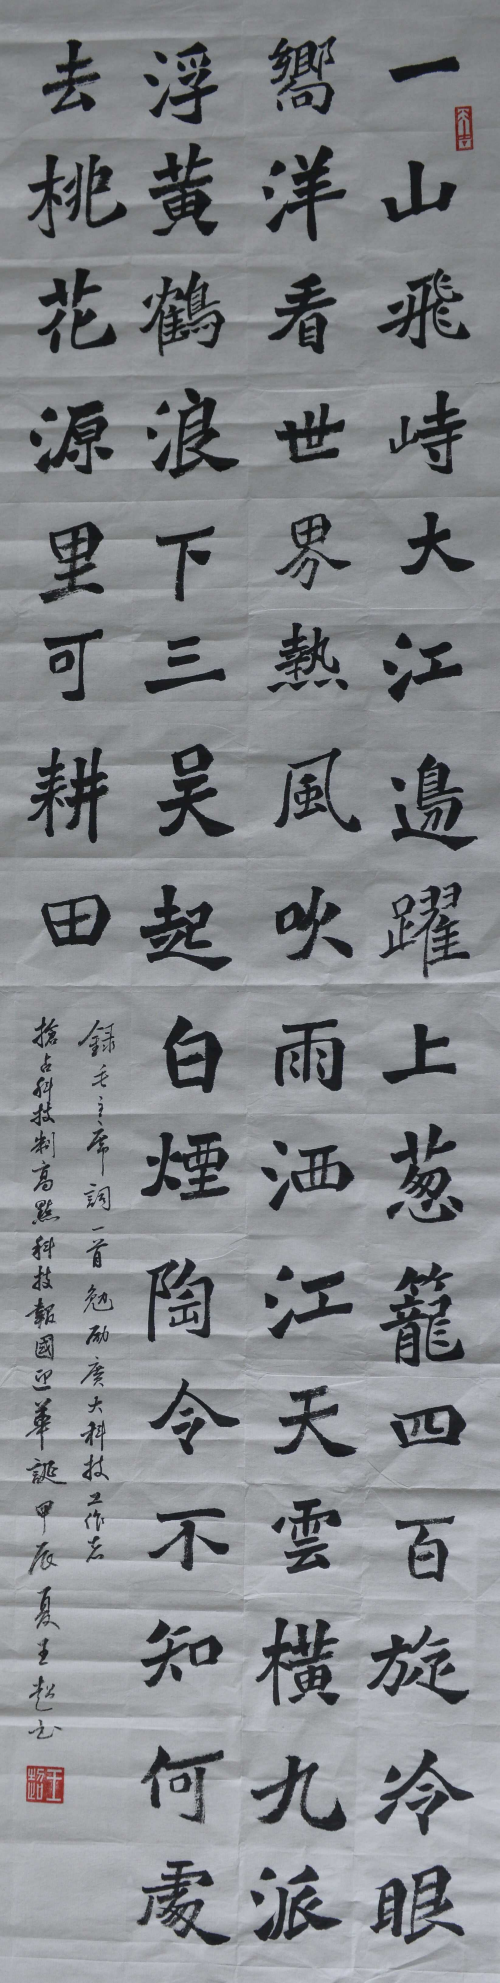 一山飛峙大江邊躍上葱籠四百旋冷眼
嚮洋看世界熱風吹雨洒江天雲橫九派
浮黃鶴浪下三吴起白煙陶令不知何處
去桃花源里可耕田
録毛主席詞一首勉励廣大科技工作者
搶占科技制高點科技報國迎華誕甲辰夏王超书
王超